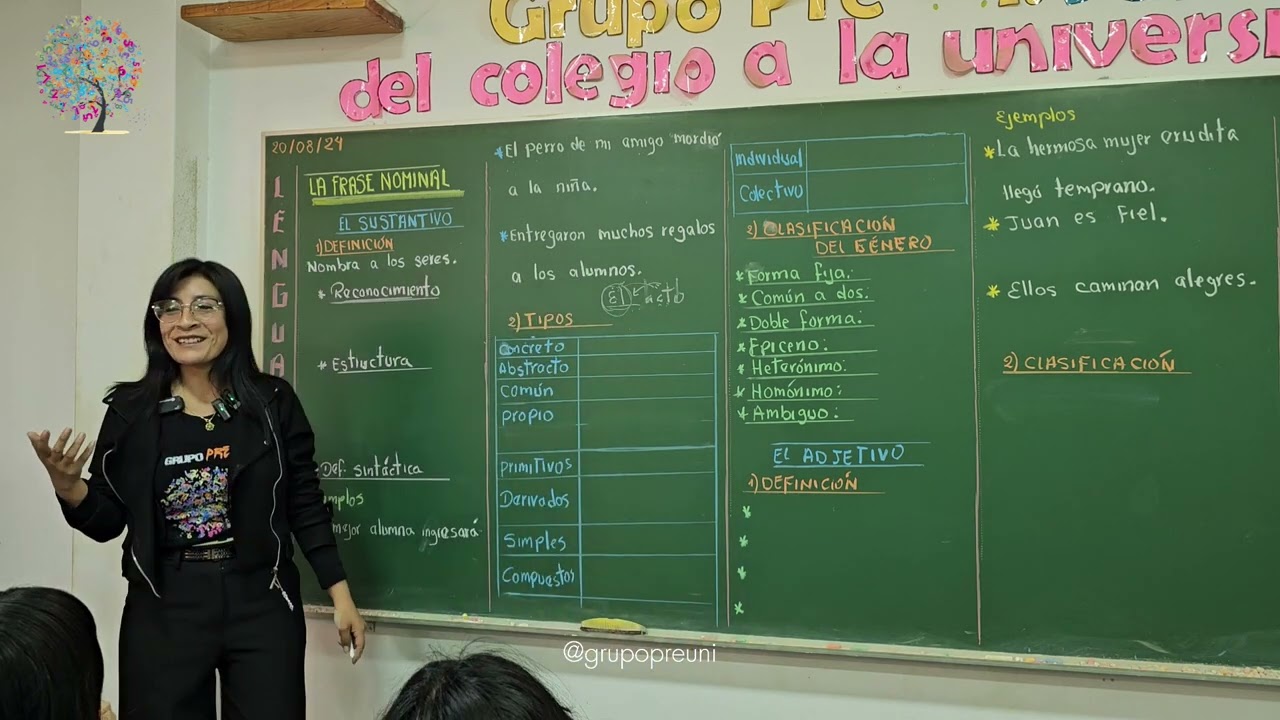 Grupo
del colegio a la universi
20/08/24
LENGUA
LA FRASE NOMINAL
EL SUSTANTIVO
1) DEFINICIÓN
Nombra a los seres.
* Reconocimiento
* Estructura
Def. sintáctica
mplos
mejor alumna ingresará
* El perro de mi amigo mordió
a la niña.
* Entregaron muchos regalos
a los alumnos.
El
2) TIPOS
Concreto
Abstracto
Común
Propio
Primitivos
Derivados
Simples
Compuestos
Individual
Colectivo
2) CLASIFICACIÓN
DEL GÉNERO
* Forma fija:
* Común a dos:
* Doble forma:
* Epiceno:
* Heterónimo:
* Homónimo:
* Ambiguo:
EL ADJETIVO
1) DEFINICIÓN
*
*
*
*
Ejemplos
* La hermosa mujer erudita
llegó temprano.
* Juan es fiel.
* Ellos caminan alegres.
2) CLASIFICACIÓN
GRUPO PRE
@grupopreuni